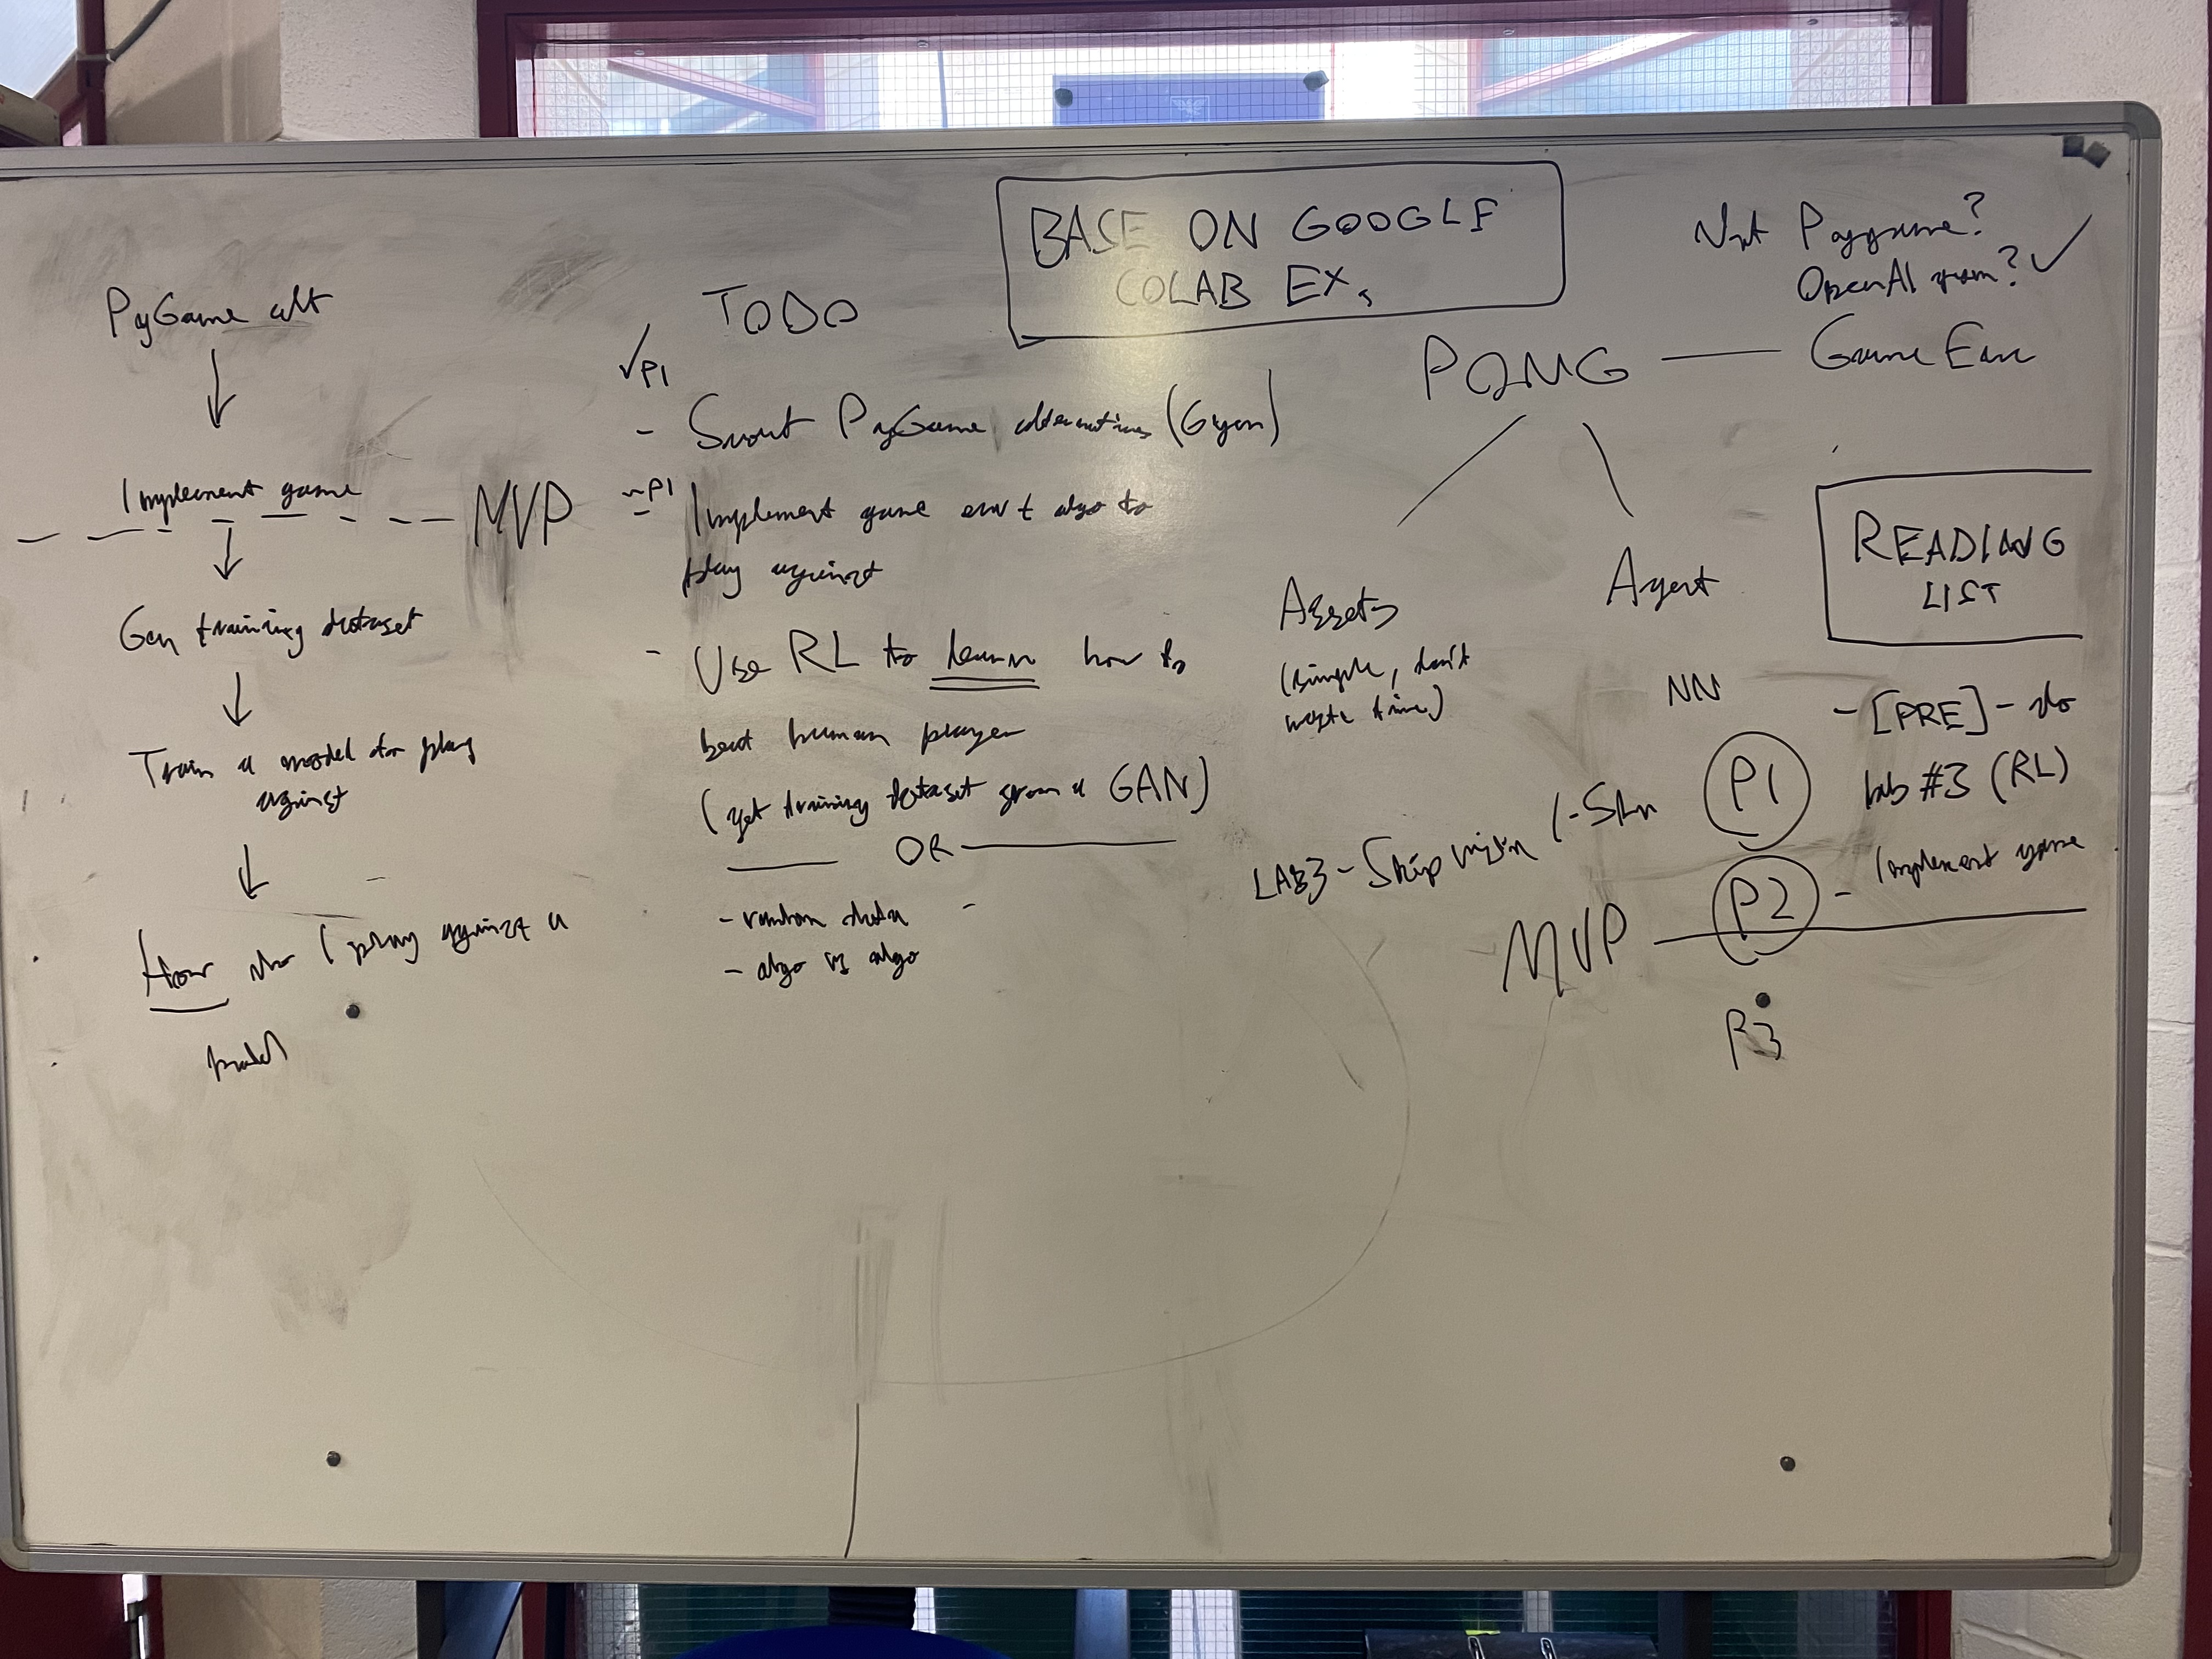 BASE ON GOOGLE
COLAB EX,
Not Pygame?
OpenAI gym? ✓
PyGame alt
↓
Implement game
MVP
↓
Gen training dataset
↓
Train a model to play
against
↓
How do I play against a
model
TODO
✓ P1
- Scout PyGame alternatives (Gym)
~P1
- Implement game env + algo to
play against
- Use RL to learn how to
beat human player
(get training dataset from a GAN)
OR
- random data
- algo vs algo
PONG — Game Env
Assets
(simple, don't
waste time)
Agent
NN
READING
LIST
P1 - [PRE] - do
lab #3 (RL)
LAB3 - Skip
P2 - Implement game
MVP
P3